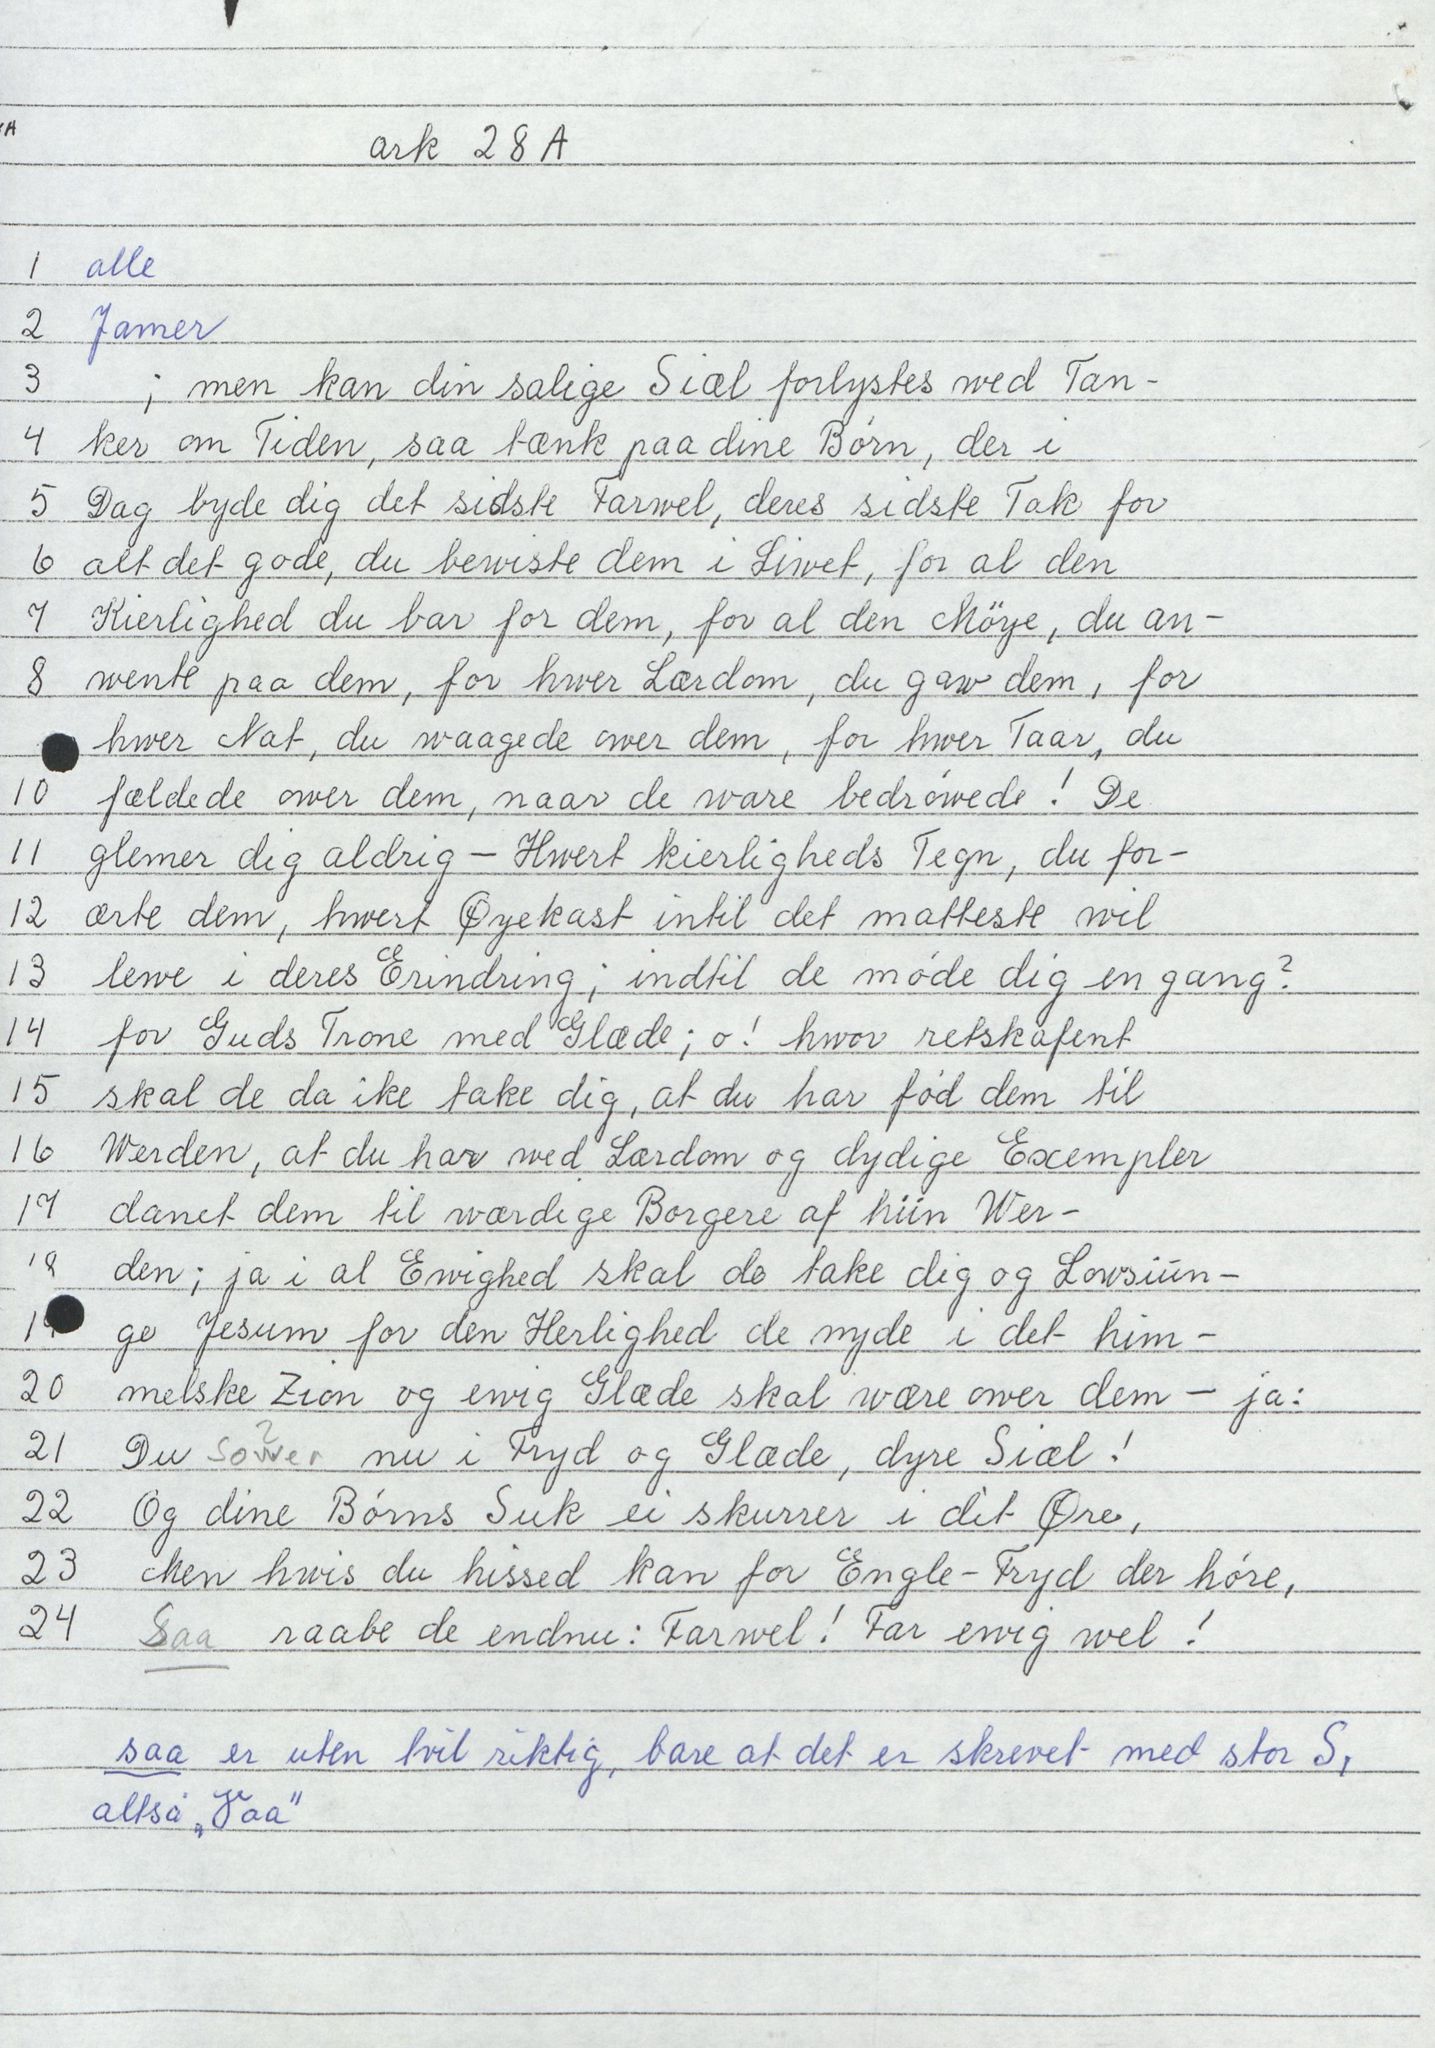 ark 28 A
1 alle
2 Jamer
3 ; men kan din salige Siæl forlystes wed Tan-
4 ker om Tiden, saa tænk paa dine Börn, der i
5 Dag byde dig det sidste Farwel, deres sidste Tak for
6 alt det gode, du bewiste dem i Liwet, for al den
7 Kierlighed du bar for dem, for al den Möye, du an-
8 wente paa dem, for hwer Lærdom, du gaw dem, for
hwer Nat, du waagede ower dem, for hwer Taar, du
10 fældede ower dem, naar de ware bedröwede! De
11 glemer dig aldrig - Hwert kierligheds Tegn, du for-
12 ærte dem, hwert Øyekast intil det matteste wil
13 lewe i deres Erindring; indtil de möde dig en gang?
14 for Guds Trone med Glæde; o! hwor retskafent
15 skal de da ike take dig, at du har föd dem til
16 Werden, at du har wed Lærdom og dydige Exempler
17 danet dem til wærdige Borgere af hiin Wer-
18 den; ja i al Ewighed skal de take dig og Lowsiün-
19 ge Jesum for den Herlighed de nyde i det him-
20 melske Zion og ewig Glæde skal wære ower dem - ja:
21 Du Sower ? nu i Fryd og Glæde, dyre Siæl!
22 Og dine Börns Suk ei skurrer i dit Øre,
23 Men hwis du hissed kan for Engle-Fryd der höre,
24 Saa raabe de endnu: Farwel! Far ewig wel!
saa er uten tvil riktig, bare at det er skrevet med stor S,
altså „Saa"